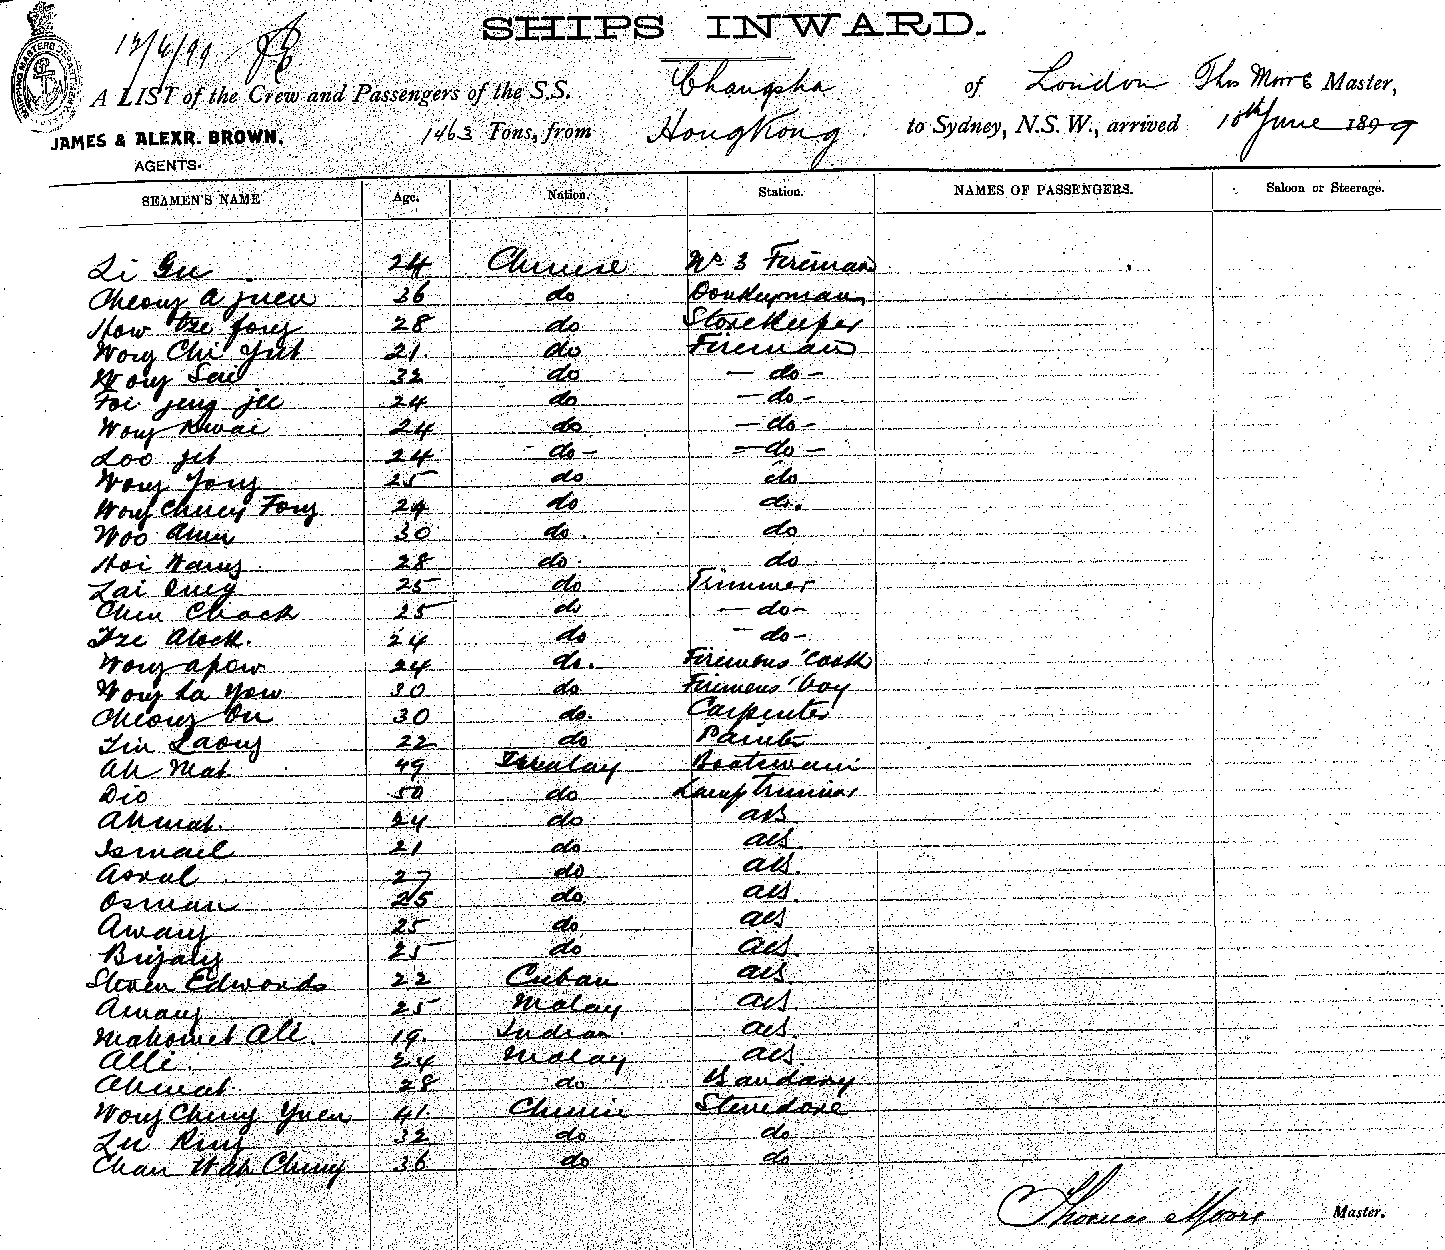 SHIPS INWARD.
12/6/99
A LIST of the Crew and Passengers of the S.S. Changsha of London Thos Moore Master,
JAMES & ALEXR. BROWN,
AGENTS.
1463 Tons, from HongKong to Sydney, N.S.W., arrived 10th June 1899
SEAMEN'S NAME Age. Nation. Station. NAMES OF PASSENGERS. Saloon or Steerage.
Li Gee 24 Chinese No 3 Fireman
Cheong A Juen 36 do Donkeyman
How Tze fong 28 do Storekeeper
Wong Chi Yut 21 do Fireman
Wong Sai 32 do - do -
Foi jeng jee 24 do - do -
Wong Kwai 24 do - do -
Loo Jit 24 - do - - do -
Wong Yong 25 do do
Wong Chuey Fong 29 do do.
Woo Amn 30 do. do
Hoi Wang 28 do. do
Lai Ping 25 do Trimmer
Chin Chock 25 do - do -
Tze Alock. 24 do - do -
Wong Apow 24 do. Firemens' Cook
Wong La Yow 30 do Firemens' boy
Cheong On 30 do. Carpenter
Lin Laong 22 do Painter
Ah Mat. 49 Malay Boatswain
Dio 50 do Lamp trimmer
Ahmat. 24 do AB
Ismael 21 do AB
Asral 27 do AB.
Osman 25 do AB
Awang 25 do AB
Bujang 25 do AB.
Steven Edwards 22 Cuban AB
Amang 25 Malay AB
Mahomet Ali. 19. Indian AB
Alli. 24 Malay AB
Ahmat. 28 do Bandary
Wong Cheng Yuen 41 Chinese Stevedore
Lee King 32 do do
Chan Wah Chung 36 do do
Thomas Moore Master.